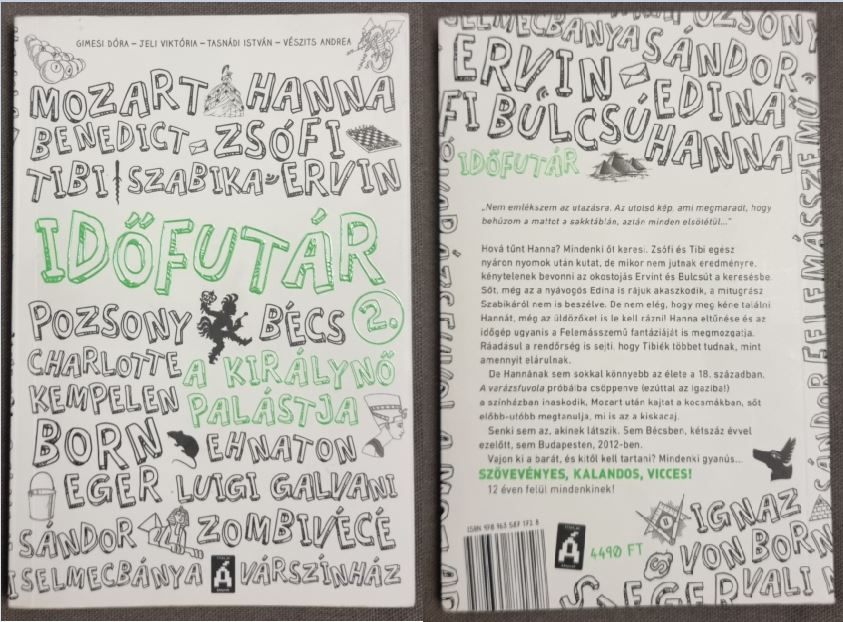 GIMESI DÓRA – JELI VIKTÓRIA – TASNÁDI ISTVÁN – VÉSZITS ANDREA
MOZART HANNA
BENEDICT ZSÓFI
TIBI SZABIKA ERVIN
IDŐFUTÁR
POZSONY BÉCS 2.
CHARLOTTE A KIRÁLYNŐ
KEMPELEN PALÁSTJA
BORN EHNATON
EGER LUIGI GALVANI
SÁNDOR ZOMBIVÉCÉ
SELMECBÁNYA Á VÁRSZÍNHÁZ
POZSONY
SELMECBÁNYA SÁNDOR
ERVIN EDINA
FI BULCSÚ HANNA
FELEMÁSSZEMŰ
SÁNDOR
IDŐFUTÁR
„Nem emlékszem az utazásra. Az utolsó kép, ami megmaradt, hogy
behúzom a mattot a sakktáblán, aztán minden elsötétül..."
Hová tűnt Hanna? Mindenki őt keresi. Zsófi és Tibi egész
nyáron nyomok után kutat, de mikor nem jutnak eredményre,
kénytelenek bevonni az okostojás Ervint és Bulcsút a keresésbe.
Sőt, még az a nyávogós Edina is rájuk akaszkodik, a mitugrász
Szabikáról nem is beszélve. De nem elég, hogy meg kéne találni
Hannát, még az üldözőket is le kell rázni! Hanna eltűnése és az
időgép ugyanis a Felemásszemű fantáziáját is megmozgatja.
Ráadásul a rendőrség is sejti, hogy Tibiék többet tudnak, mint
amennyit elárulnak.
De Hannának sem sokkal könnyebb az élete a 18. században.
A varázsfuvola próbáiba csöppenve (ezúttal az igaziba!)
a színházban inaskodik, Mozart után kajtat a kocsmákban, sőt
előbb-utóbb megtanulja, mi is az a kiskacaj.
Senki sem az, akinek látszik. Sem Bécsben, kétszáz évvel
ezelőtt, sem Budapesten, 2012-ben.
Vajon ki a barát, és kitől kell tartani? Mindenki gyanús...
SZÖVEVÉNYES, KALANDOS, VICCES!
12 éven felül mindenkinek!
ISBN 978 963 587 172 8
Á
4490 FT
IGNAZ
VON BORN
EGER VALI